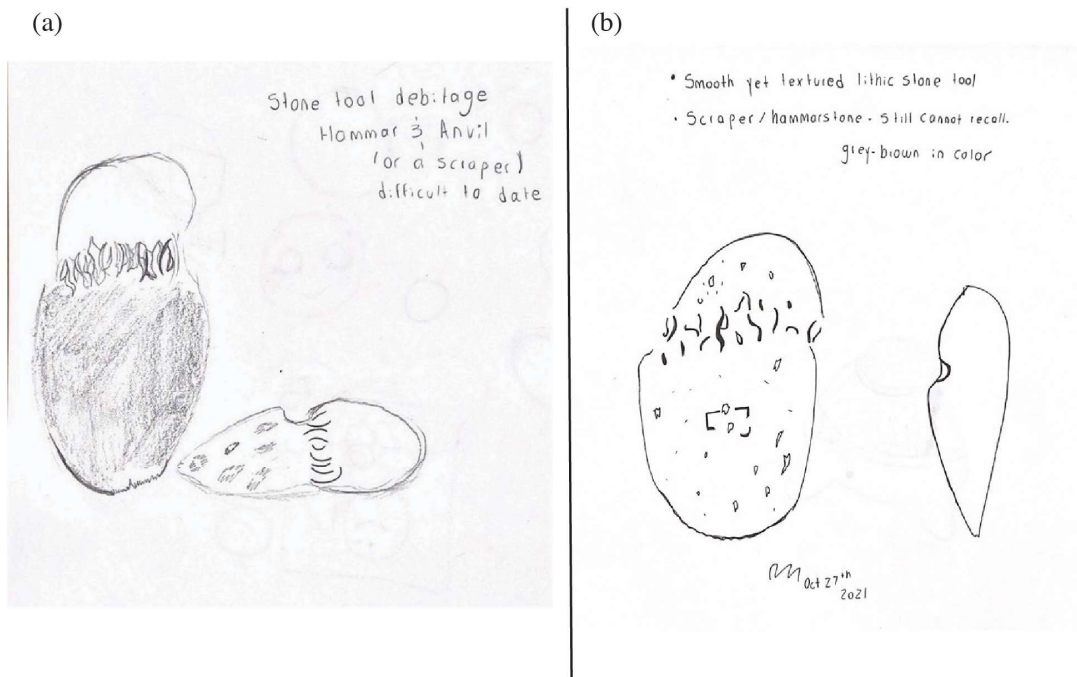 (a)
Stone tool debitage
Hammar & Anvil
(or a scraper)
difficult to date
(b)
• Smooth yet textured lithic stone tool
• Scraper/hammarstone - Still cannot recall.
grey-brown in color
Oct 27th
2021